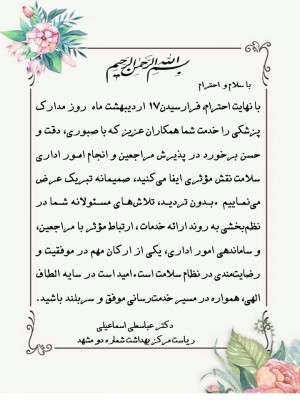 بسم الله الرحمن الرحیم
با سلام و احترام
با نهایت احترام، فرارسیدن۱۷ اردیبهشت ماه روز مدارک
پزشکی را خدمت شما همکاران عزیز که با صبوری، دقت و
حسن برخورد در پذیرش مراجعین و انجام امور اداری
سلامت نقش مؤثری ایفا می‌کنید، صمیمانه تبریک عرض
می‌نماییم .بدون تردید، تلاش‌های مسئولانه شما در
نظم‌بخشی به روند ارائه خدمات، ارتباط مؤثر با مراجعین،
و ساماندهی امور اداری، یکی از ارکان مهم در موفقیت و
رضایت‌مندی در نظام سلامت است.امید است در سایه الطاف
الهی، همواره در مسیر خدمت‌رسانی موفق و سربلند باشید.
دکتر عباسعلی اسماعیلی
ریاست مرکز بهداشت شماره دو مشهد